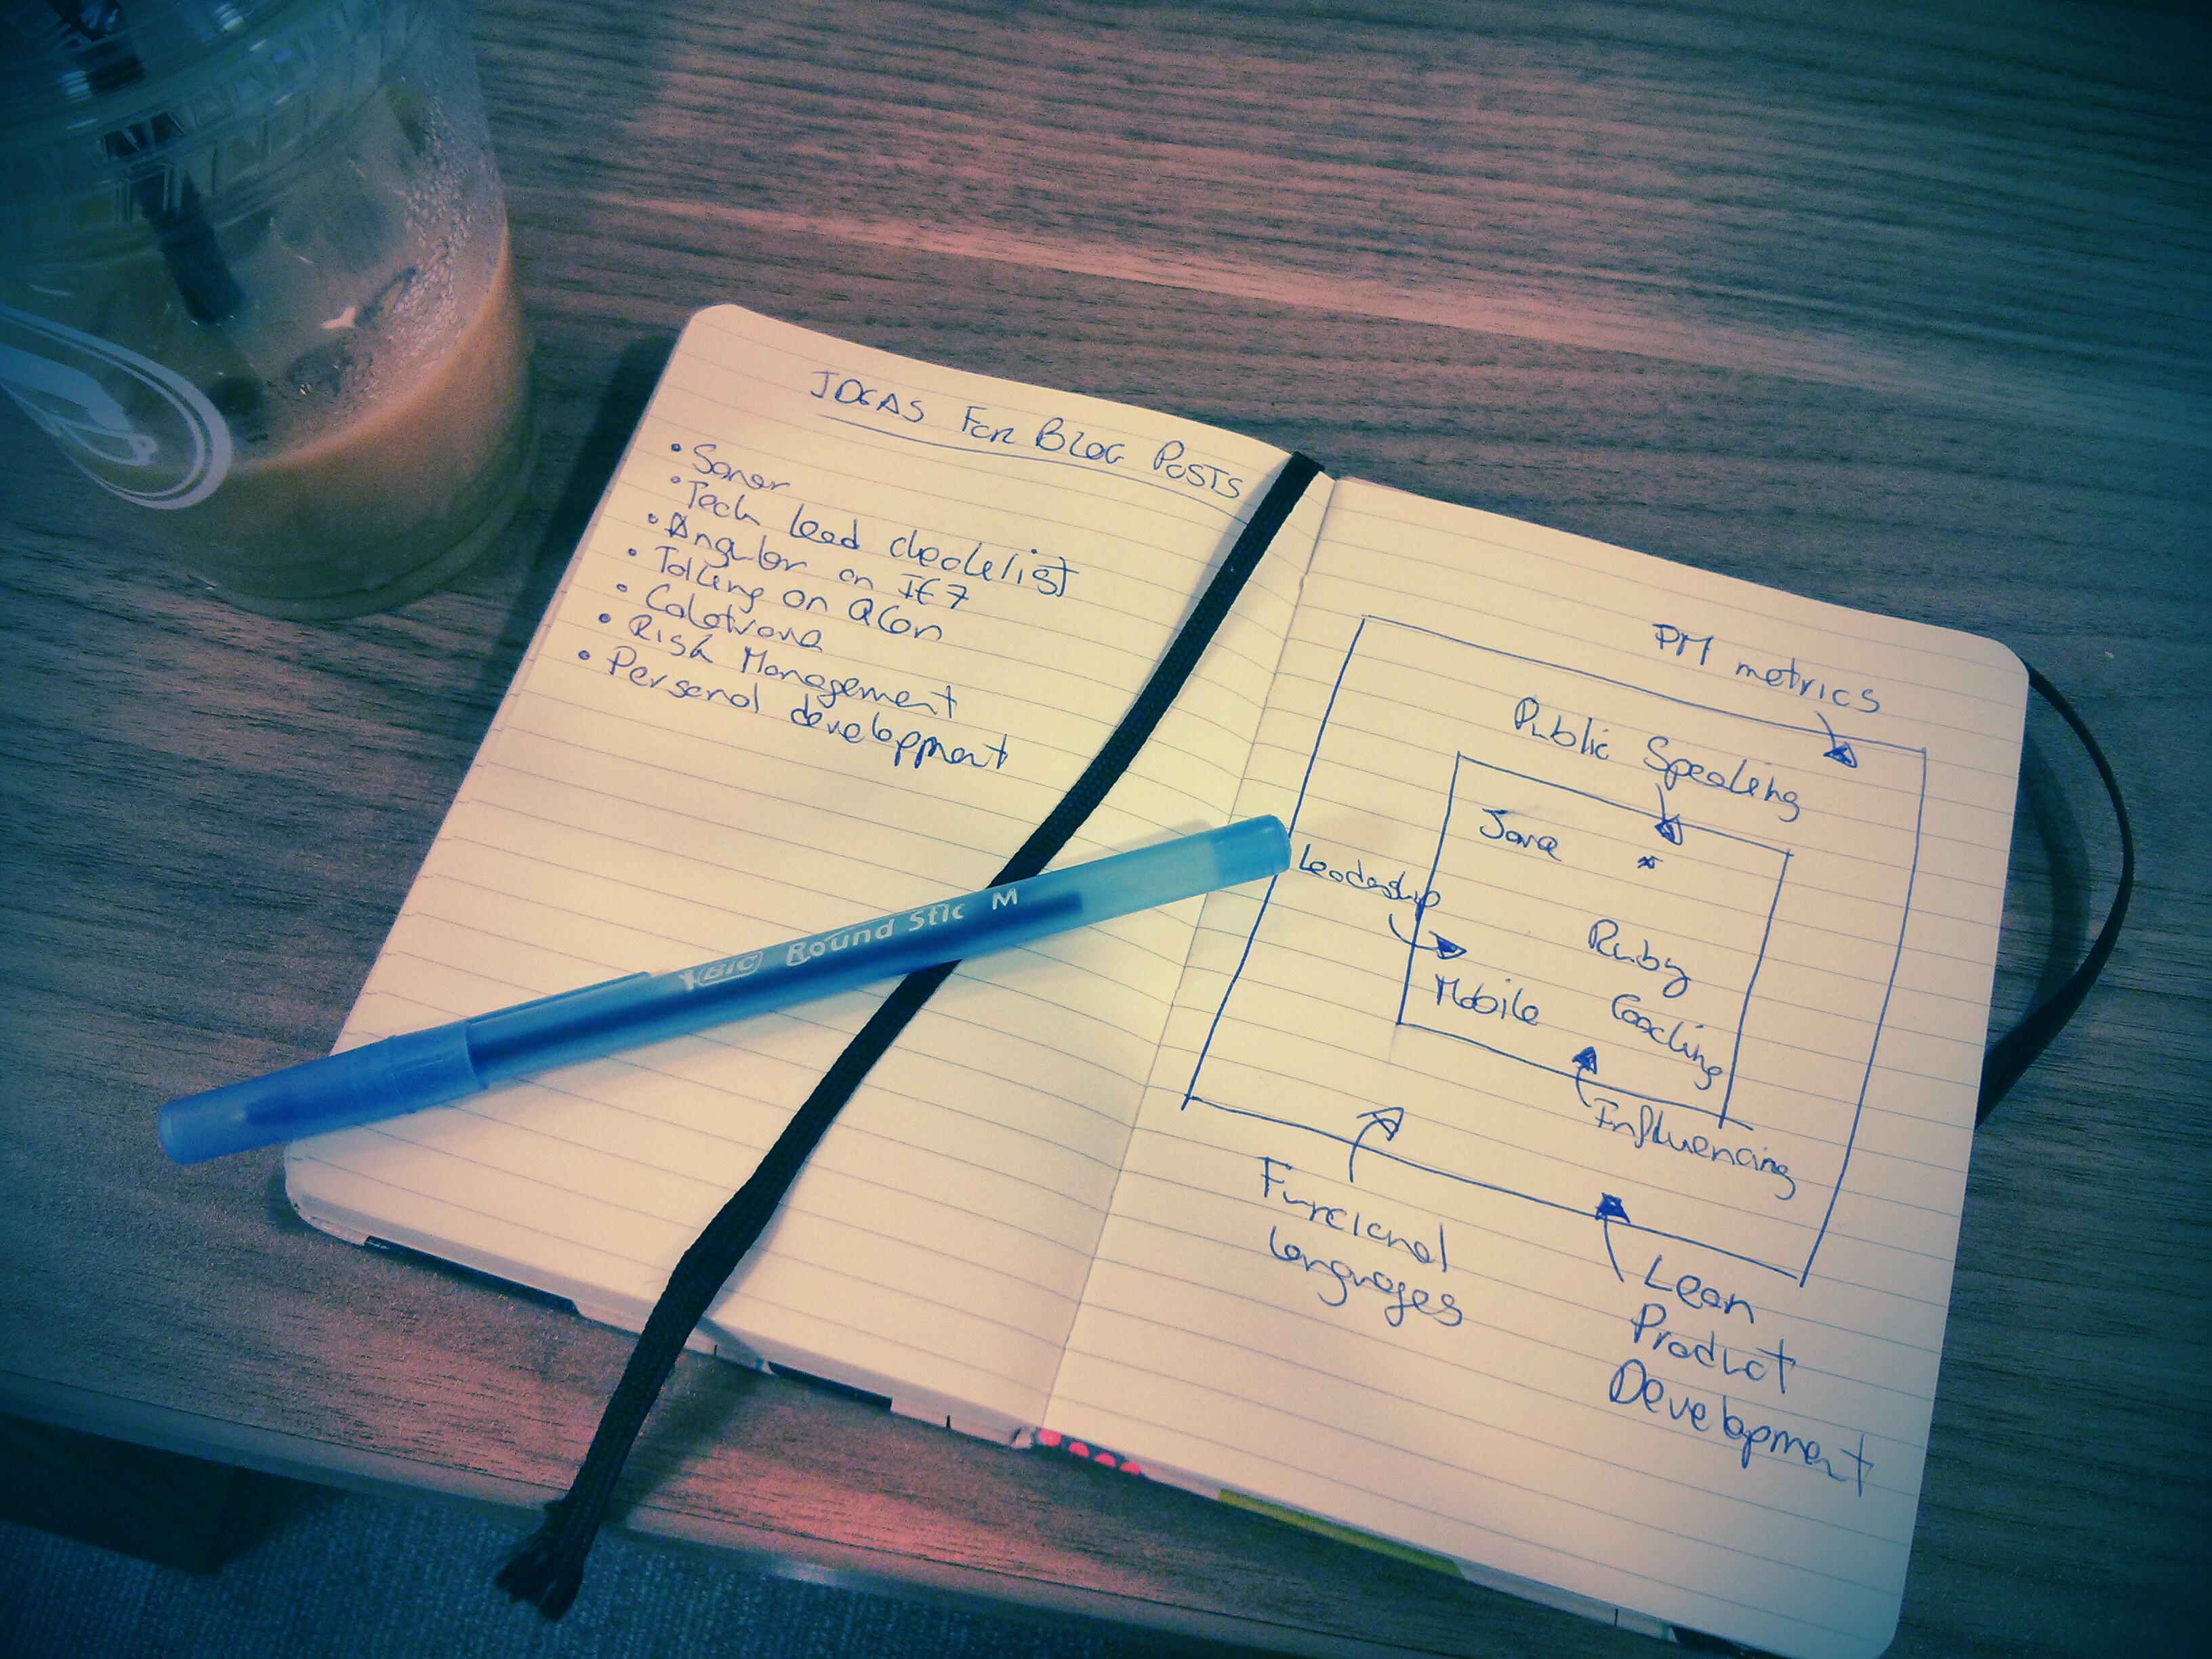 IDEAS FOR BLOG POSTS
• Sonar
• Tech lead checklist
• Angular on IE7
• Talking on QCon
• Calatrava
• Risk Management
• Personal development
BIC Round Stic M
PM metrics
Public Speaking
Java
Leadership
Ruby
Mobile
Coaching
Influencing
Funcional
Languages
Lean
Product
Development